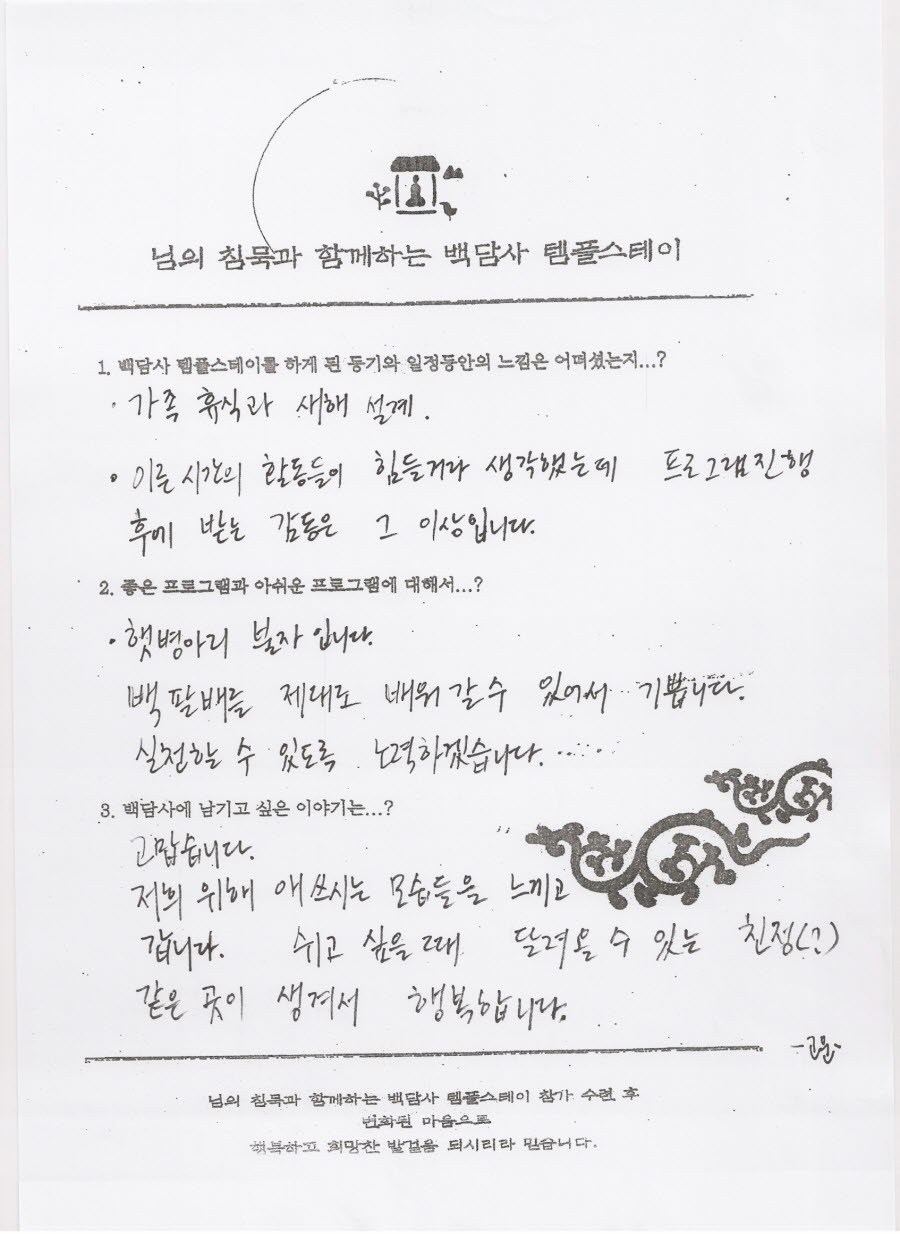 님의 침묵과 함께하는 백담사 템플스테이
1. 백담사 템플스테이를 하게 된 동기와 일정동안의 느낌은 어떠셨는지...?
· 가족 휴식과 새해 설계.
· 이른 시간의 활동들이 힘들거라 생각했는데 프로그램진행
후에 받는 감동은 그 이상입니다.
2. 좋은 프로그램과 아쉬운 프로그램에 대해서...?
· 햇병아리 불자 입니다.
백팔배를 제대로 배워 갈 수 있어서 기쁩니다.
실천할 수 있도록 노력하겠습니다.
3. 백담사에 남기고 싶은 이야기는...?
고맙습니다.
저희 위해 애쓰시는 모습들을 느끼고
갑니다. 쉬고 싶을 때 달려올 수 있는 친정(?)
같은 곳이 생겨서 행복합니다.
님의 침묵과 함께하는 백담사 템플스테이 참가 수련 후
변화된 마음으로
행복하고 희망찬 발걸음 되시리라 믿습니다.